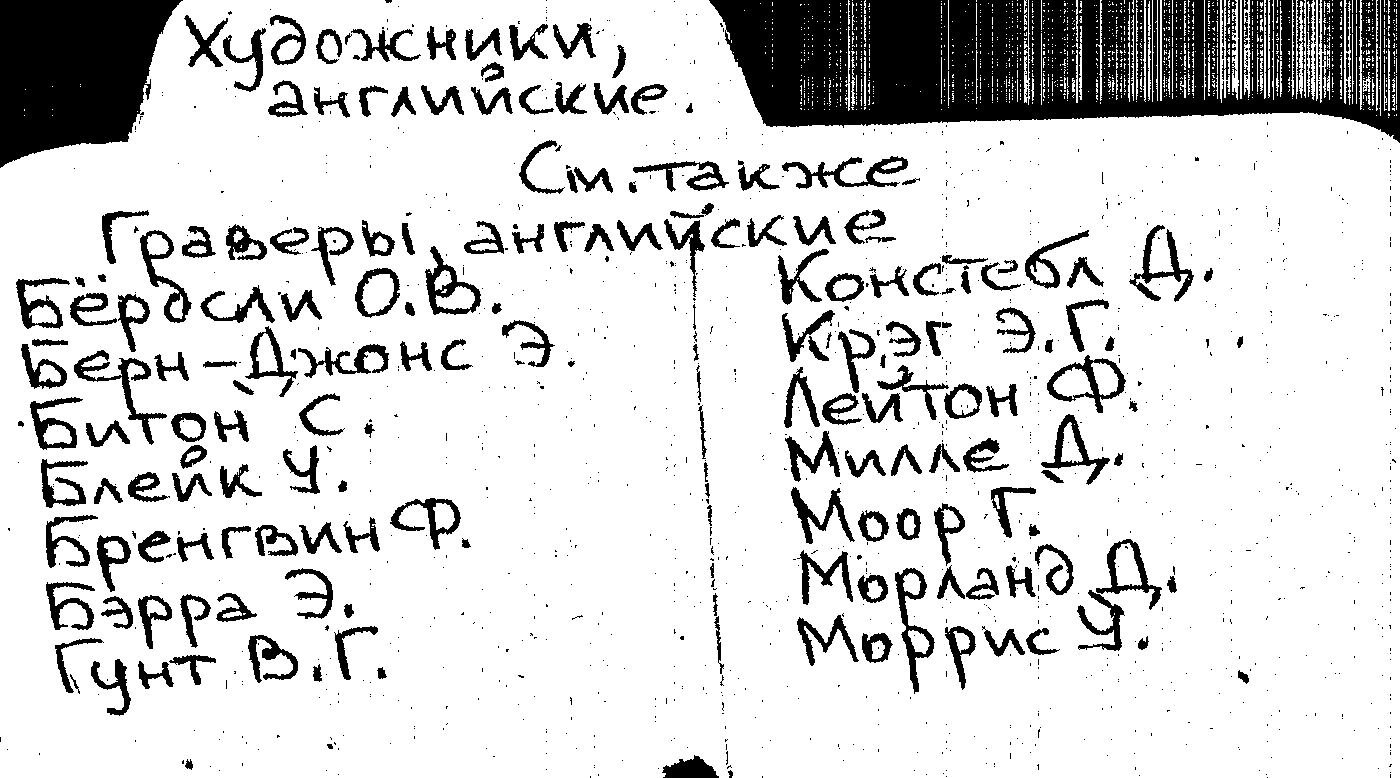 Художники,
английские.
См. также
Граверы, английские
Бёрдсли О.В.
Берн-Джонс Э.
Битон С.
Блейк У.
Бренгвин Ф.
Бэрра Э.
Гунт В.Г.
Констебл Д.
Крэг Э.Г.
Лейтон Ф.
Милле Д.
Моор Г.
Морланд Д.
Моррис У.